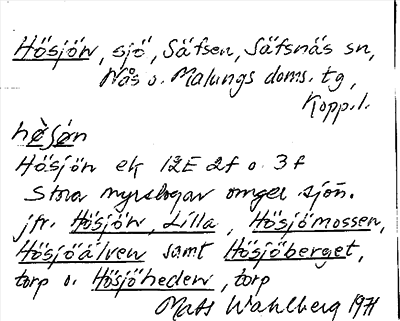 Hösjön, sjö, Säfsen, Säfsnäs sn,
Nås o. Malungs doms. tg,
Kopp.l.
hø̀søn
Hösjön ek 12E 2f o. 3f
Stora myrslogar omger sjön.
jfr. Hösjön, Lilla, Hösjömossen,
Hösjöälven samt Hösjöberget,
torp o. Hösjöheden, torp
Mats Wahlberg 1971